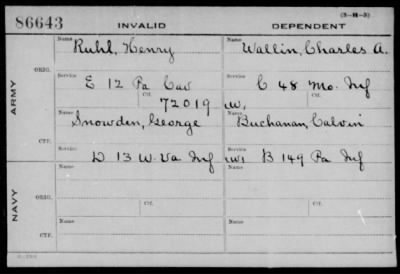 86643 INVALID DEPENDENT (3-H-3)
Name Ruhl, Henry Name Wallin, Charles A.
ARMY
ORIG.
Service E 12 Pa Cav Service C 48 Mo. Inf
Ctf. 72019 Ctf. W,
Name Snowden, George Name Buchanan, Calvin
CTF.
Service D 13 W. Va Inf Service W, B 149 Pa Inf
NAVY
Name Name
ORIG.
Service Ctf. Service Ctf.
Name Name
CTF.
Service Service